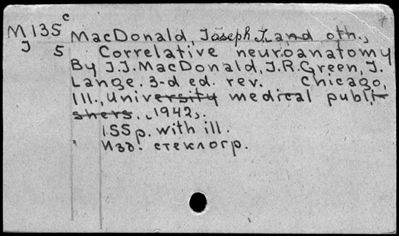 M135 c MacDonald, Joseph J. and oth.,
J 5 Correlative neuroanatomy
By J.J.MacDonald, J.R.Green, J.
Lange. 3-d ed. rev. Chicago,
Ill., University medical publi-
shers, 1942.
155 p. with ill.
Изд. стеклогр.